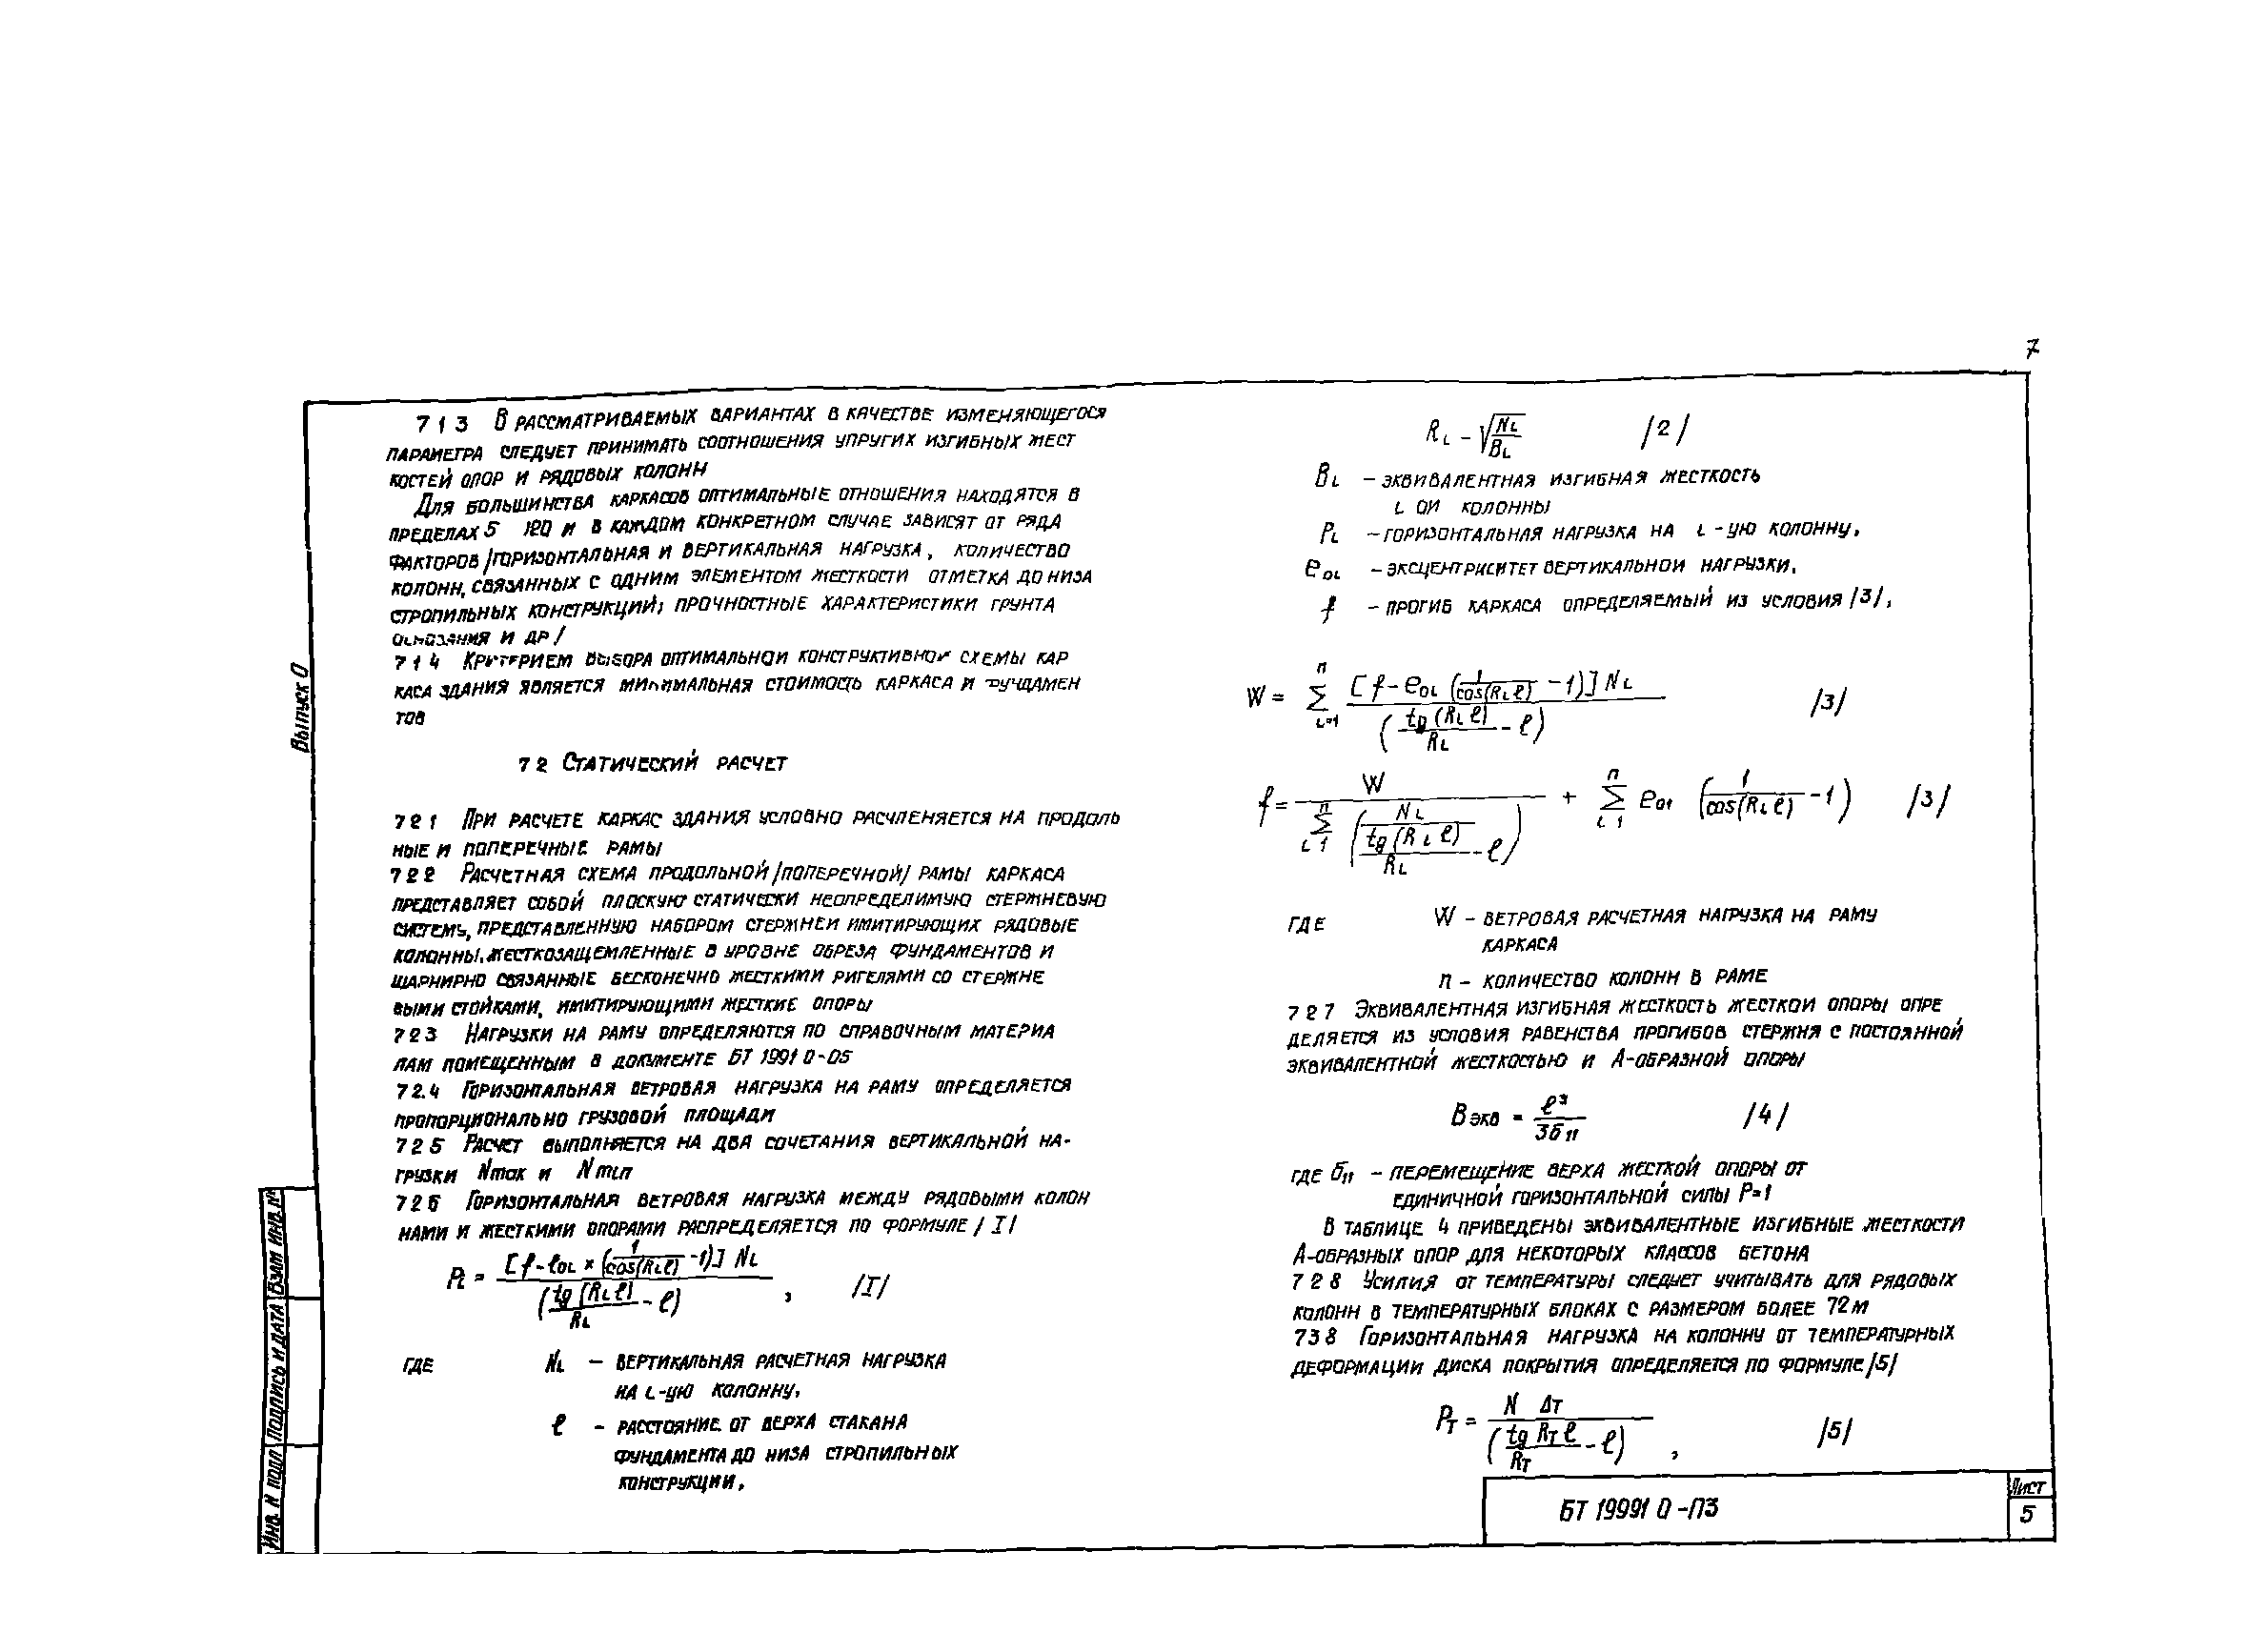 7
7 1 3 В РАССМАТРИВАЕМЫХ ВАРИАНТАХ В КАЧЕСТВЕ ИЗМЕНЯЮЩЕГОСЯ
ПАРАМЕТРА СЛЕДУЕТ ПРИНИМАТЬ СООТНОШЕНИЯ УПРУГИХ ИЗГИБНЫХ ЖЕСТ
КОСТЕЙ ОПОР И РЯДОВЫХ КОЛОНН
ДЛЯ БОЛЬШИНСТВА КАРКАСОВ ОПТИМАЛЬНЫЕ ОТНОШЕНИЯ НАХОДЯТСЯ В
ПРЕДЕЛАХ 5 120 И В КАЖДОМ КОНКРЕТНОМ СЛУЧАЕ ЗАВИСЯТ ОТ РЯДА
ФАКТОРОВ /ГОРИЗОНТАЛЬНАЯ И ВЕРТИКАЛЬНАЯ НАГРУЗКА, КОЛИЧЕСТВО
КОЛОНН, СВЯЗАННЫХ С ОДНИМ ЭЛЕМЕНТОМ ЖЕСТКОСТИ ОТМЕТКА ДО НИЗА
СТРОПИЛЬНЫХ КОНСТРУКЦИЙ, ПРОЧНОСТНЫЕ ХАРАКТЕРИСТИКИ ГРУНТА
ОСНОВАНИЯ И ДР /
7 1 4 КРИТЕРИЕМ ВЫБОРА ОПТИМАЛЬНОЙ КОНСТРУКТИВНОЙ СХЕМЫ КАР
КАСА ЗДАНИЯ ЯВЛЯЕТСЯ МИНИМАЛЬНАЯ СТОИМОСТЬ КАРКАСА И ФУНДАМЕН
ТОВ
7 2 СТАТИЧЕСКИЙ РАСЧЕТ
7 2 1 ПРИ РАСЧЕТЕ КАРКАС ЗДАНИЯ УСЛОВНО РАСЧЛЕНЯЕТСЯ НА ПРОДОЛЬ
НЫЕ И ПОПЕРЕЧНЫЕ РАМЫ
7 2 2 РАСЧЕТНАЯ СХЕМА ПРОДОЛЬНОЙ /ПОПЕРЕЧНОЙ/ РАМЫ КАРКАСА
ПРЕДСТАВЛЯЕТ СОБОЙ ПЛОСКУЮ СТАТИЧЕСКИ НЕОПРЕДЕЛИМУЮ СТЕРЖНЕВУЮ
СИСТЕМЫ, ПРЕДСТАВЛЕННУЮ НАБОРОМ СТЕРЖНЕЙ ИМИТИРУЮЩИХ РЯДОВЫЕ
КОЛОННЫ, ЖЕСТКОЗАЩЕМЛЕННЫЕ В УРОВНЕ ОБРЕЗА ФУНДАМЕНТОВ И
ШАРНИРНО СВЯЗАННЫЕ БЕСКОНЕЧНО ЖЕСТКИМИ РИГЕЛЯМИ СО СТЕРЖНЕ
ВЫМИ СТОЙКАМИ, ИМИТИРУЮЩИМИ ЖЕСТКИЕ ОПОРЫ
7 2 3 НАГРУЗКИ НА РАМУ ОПРЕДЕЛЯЮТСЯ ПО СПРАВОЧНЫМ МАТЕРИА
ЛАМ ПОМЕЩЕННЫМ В ДОКУМЕНТЕ БТ 1991 0-05
7 2.4 ГОРИЗОНТАЛЬНАЯ ВЕТРОВАЯ НАГРУЗКА НА РАМУ ОПРЕДЕЛЯЕТСЯ
ПРОПОРЦИОНАЛЬНО ГРУЗОВОЙ ПЛОЩАДИ
7 2 5 РАСЧЕТ ВЫПОЛНЯЕТСЯ НА ДВА СОЧЕТАНИЯ ВЕРТИКАЛЬНОЙ НА-
ГРУЗКИ Nmax И Nmin
7 2 6 ГОРИЗОНТАЛЬНАЯ ВЕТРОВАЯ НАГРУЗКА МЕЖДУ РЯДОВЫМИ КОЛОН
НАМИ И ЖЕСТКИМИ ОПОРАМИ РАСПРЕДЕЛЯЕТСЯ ПО ФОРМУЛЕ / I /
Pi = [f-eoi × (1/cos(Ri ℓ) -1)] Ni / (tg (Ri ℓ)/Ri - ℓ) , /I/
ГДЕ Ni – ВЕРТИКАЛЬНАЯ РАСЧЕТНАЯ НАГРУЗКА
НА i-УЮ КОЛОННУ,
ℓ – РАССТОЯНИЕ ОТ ВЕРХА СТАКАНА
ФУНДАМЕНТА ДО НИЗА СТРОПИЛЬНЫХ
КОНСТРУКЦИИ,
Ri - √Ni/Bi /2/
Bi – ЭКВИВАЛЕНТНАЯ ИЗГИБНАЯ ЖЕСТКОСТЬ
i ОЙ КОЛОННЫ
Pi – ГОРИЗОНТАЛЬНАЯ НАГРУЗКА НА i-УЮ КОЛОННУ,
eoi – ЭКСЦЕНТРИСИТЕТ ВЕРТИКАЛЬНОЙ НАГРУЗКИ,
f – ПРОГИБ КАРКАСА ОПРЕДЕЛЯЕМЫЙ ИЗ УСЛОВИЯ /3/,
W = n Σ i=1 [f-eoi (1/cos(Ri ℓ) -1)] Ni / (tg (Ri ℓ)/Ri - ℓ) /3/
f = W / n Σ i 1 (Ni / tg (Ri ℓ)/Ri - ℓ) + n Σ i 1 eoi (1/cos(Ri ℓ) -1) /3/
ГДЕ W – ВЕТРОВАЯ РАСЧЕТНАЯ НАГРУЗКА НА РАМУ
КАРКАСА
n – КОЛИЧЕСТВО КОЛОНН В РАМЕ
7 2 7 ЭКВИВАЛЕНТНАЯ ИЗГИБНАЯ ЖЕСТКОСТЬ ЖЕСТКОЙ ОПОРЫ ОПРЕ
ДЕЛЯЕТСЯ ИЗ УСЛОВИЯ РАВЕНСТВА ПРОГИБОВ СТЕРЖНЯ С ПОСТОЯННОЙ
ЭКВИВАЛЕНТНОЙ ЖЕСТКОСТЬЮ И А-ОБРАЗНОЙ ОПОРЫ
B экв = ℓ³/3δ11 /4/
ГДЕ δ11 – ПЕРЕМЕЩЕНИЕ ВЕРХА ЖЕСТКОЙ ОПОРЫ ОТ
ЕДИНИЧНОЙ ГОРИЗОНТАЛЬНОЙ СИЛЫ Р=1
В ТАБЛИЦЕ 4 ПРИВЕДЕНЫ ЭКВИВАЛЕНТНЫЕ ИЗГИБНЫЕ ЖЕСТКОСТИ
А-ОБРАЗНЫХ ОПОР ДЛЯ НЕКОТОРЫХ КЛАССОВ БЕТОНА
7 2 8 УСИЛИЯ ОТ ТЕМПЕРАТУРЫ СЛЕДУЕТ УЧИТЫВАТЬ ДЛЯ РЯДОВЫХ
КОЛОНН В ТЕМПЕРАТУРНЫХ БЛОКАХ С РАЗМЕРОМ БОЛЕЕ 72 М
7 3 8 ГОРИЗОНТАЛЬНАЯ НАГРУЗКА НА КОЛОННУ ОТ ТЕМПЕРАТУРНЫХ
ДЕФОРМАЦИИ ДИСКА ПОКРЫТИЯ ОПРЕДЕЛЯЕТСЯ ПО ФОРМУЛЕ /5/
Pт = N Δт / (tg Rт ℓ/Rт - ℓ) , /5/
БТ 19991 0-ПЗ
Лист
5
Выпуск 0
Инв. N подл
Подпись и дата
Взам инв. N°